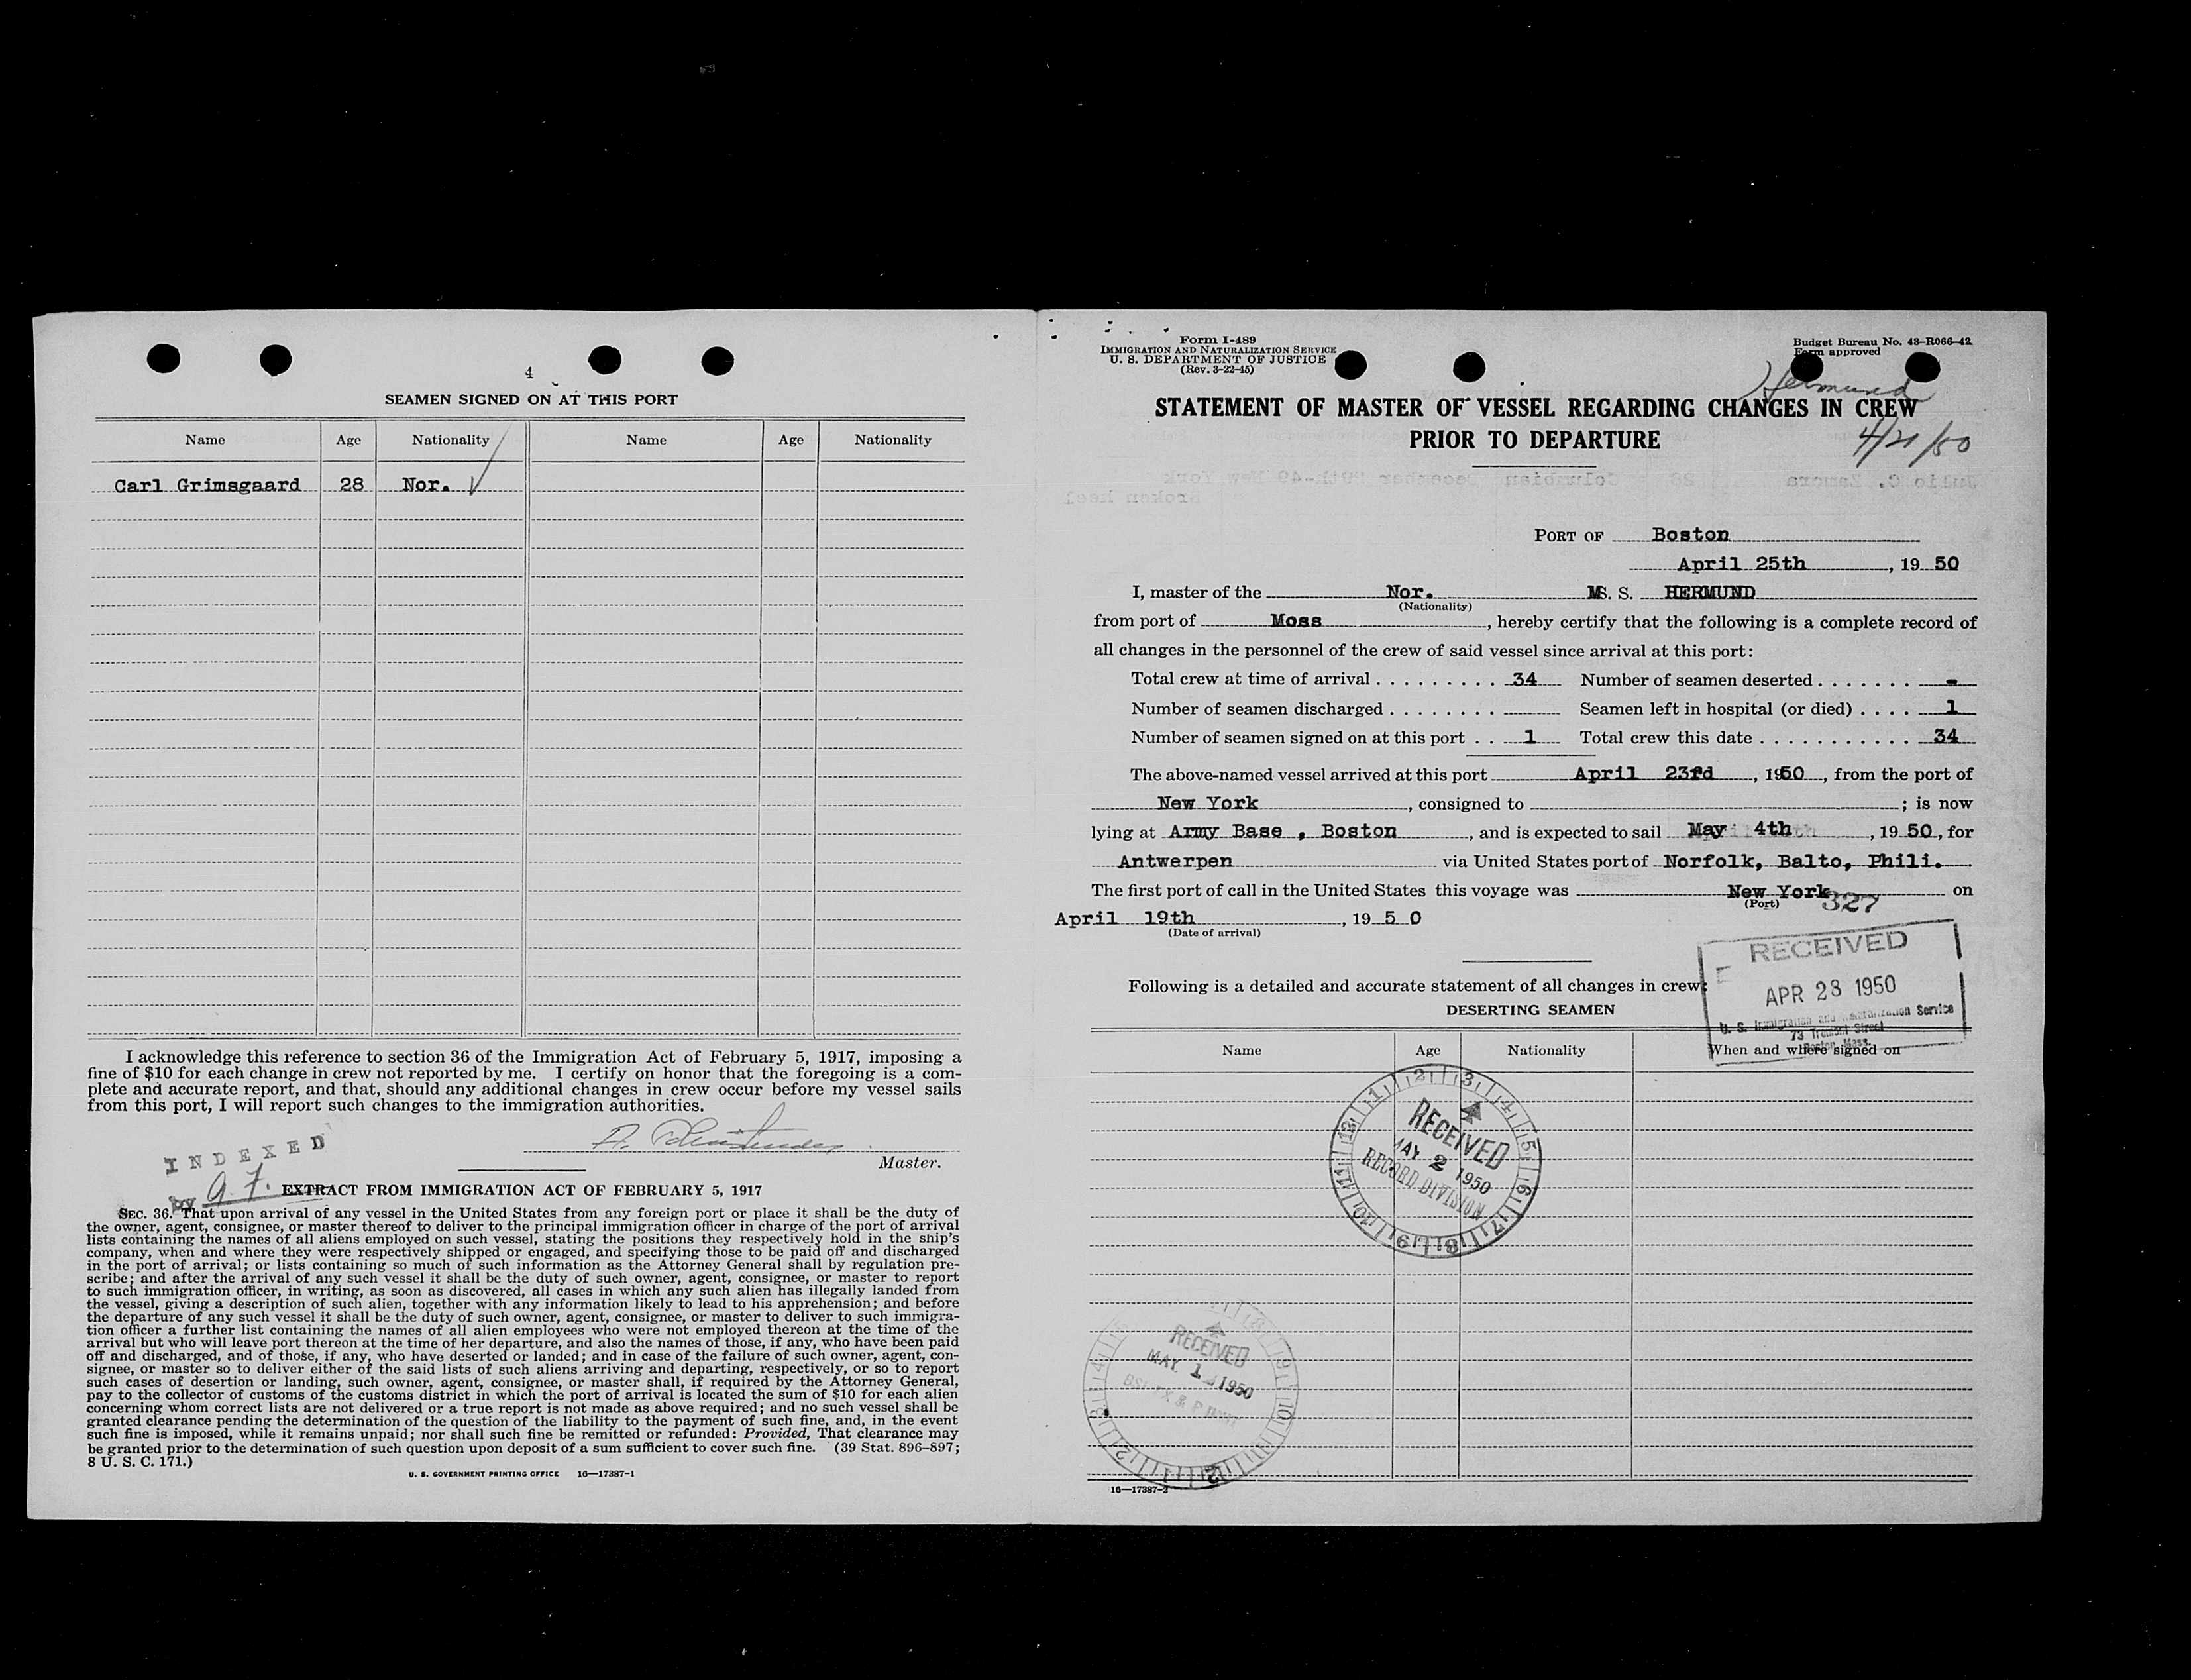 4
SEAMEN SIGNED ON AT THIS PORT
Name Age Nationality Name Age Nationality
Carl Grimsgaard 28 Nor. ✓
I acknowledge this reference to section 36 of the Immigration Act of February 5, 1917, imposing a
fine of $10 for each change in crew not reported by me. I certify on honor that the foregoing is a com-
plete and accurate report, and that, should any additional changes in crew occur before my vessel sails
from this port, I will report such changes to the immigration authorities.
Master.
INDEXED
by
EXTRACT FROM IMMIGRATION ACT OF FEBRUARY 5, 1917
SEC. 36. That upon arrival of any vessel in the United States from any foreign port or place it shall be the duty of
the owner, agent, consignee, or master thereof to deliver to the principal immigration officer in charge of the port of arrival
lists containing the names of all aliens employed on such vessel, stating the positions they respectively hold in the ship's
company, when and where they were respectively shipped or engaged, and specifying those to be paid off and discharged
in the port of arrival; or lists containing so much of such information as the Attorney General shall by regulation pre-
scribe; and after the arrival of any such vessel it shall be the duty of such owner, agent, consignee, or master to report
to such immigration officer, in writing, as soon as discovered, all cases in which any such alien has illegally landed from
the vessel, giving a description of such alien, together with any information likely to lead to his apprehension; and before
the departure of any such vessel it shall be the duty of such owner, agent, consignee, or master to deliver to such immigra-
tion officer a further list containing the names of all alien employees who were not employed thereon at the time of the
arrival but who will leave port thereon at the time of her departure, and also the names of those, if any, who have been paid
off and discharged, and of those, if any, who have deserted or landed; and in case of the failure of such owner, agent, con-
signee, or master so to deliver either of the said lists of such aliens arriving and departing, respectively, or so to report
such cases of desertion or landing, such owner, agent, consignee, or master shall, if required by the Attorney General,
pay to the collector of customs of the customs district in which the port of arrival is located the sum of $10 for each alien
concerning whom correct lists are not delivered or a true report is not made as above required; and no such vessel shall be
granted clearance pending the determination of the question of the liability to the payment of such fine, and, in the event
such fine is imposed, while it remains unpaid; nor shall such fine be remitted or refunded: Provided, That clearance may
be granted prior to the determination of such question upon deposit of a sum sufficient to cover such fine. (39 Stat. 896-897;
8 U. S. C. 171.)
U. S. GOVERNMENT PRINTING OFFICE 16—17387-1
Form I-489
IMMIGRATION AND NATURALIZATION SERVICE
U. S. DEPARTMENT OF JUSTICE
(Rev. 3-22-45)
Budget Bureau No. 43-R066-42
Form approved
Hermund
STATEMENT OF MASTER OF VESSEL REGARDING CHANGES IN CREW
PRIOR TO DEPARTURE
4/21/50
PORT OF Boston
April 25th, 19 50
I, master of the Nor. MS. S. HERMUND
(Nationality)
from port of Moss, hereby certify that the following is a complete record of
all changes in the personnel of the crew of said vessel since arrival at this port:
Total crew at time of arrival . . . . . . . . . . 34 Number of seamen deserted . . . . . . . -
Number of seamen discharged . . . . . . . . Seamen left in hospital (or died) . . . . 1
Number of seamen signed on at this port . . 1 Total crew this date . . . . . . . . . . . . 34
The above-named vessel arrived at this port April 23rd, 1950, from the port of
New York, consigned to ; is now
lying at Army Base, Boston, and is expected to sail May 4th, 19 50, for
Antwerpen via United States port of Norfolk, Balto, Phili.
The first port of call in the United States this voyage was New York on
(Port) 327
April 19th, 19 5 0
(Date of arrival)
RECEIVED
APR 28 1950
U. S. Immigration and Naturalization Service
73 Tremont Street
Boston, Mass.
Following is a detailed and accurate statement of all changes in crew:
DESERTING SEAMEN
Name Age Nationality When and where signed on
RECEIVED
MAY 2 1950
RECORD DIVISION
RECEIVED
MAY. 1 1950
16—17387-2